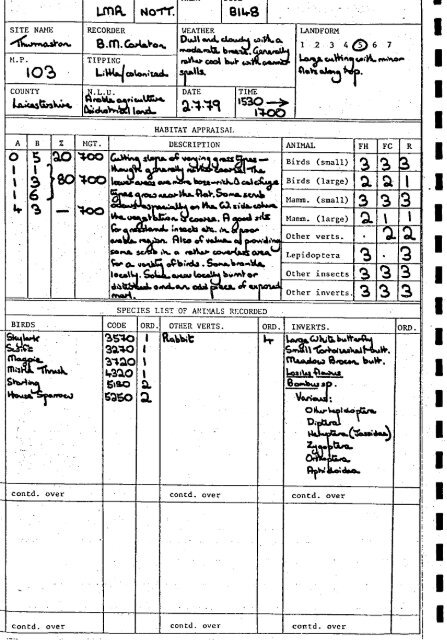 LMR NOTT. 8148
SITE NAME RECORDER WEATHER LANDFORM
Thurmaston B.M. Carleton Dull and cloudy with a moderate breeze. Generally rather cool but with warmer spells.
1 2 3 4 5 6 7
Large cutting with minor flats along top.
M.P. TIPPING
103 Little/colonized
COUNTY N.L.U. DATE TIME
Leicestershire Arable agriculture 2.7.79 1530 →
Industrial land 1700
HABITAT APPRAISAL
A B % MGT. DESCRIPTION ANIMAL FH FC R
0 5 20 700 Cutting slope of varying grass types –
1 1 though generally rather coarse. The
1 3 80 700 lower areas are more base-with
1 6 types grass near the flat. Some scrub
4 3 – 700 especially on the W. side where
the vegetation is coarse. A good site
for grassland insects etc. in a poor
arable region. Also of value in providing
some scrub in a rather coverless area
for a variety of birds. Some bramble
locally. Some areas locally burnt or
disturbed and an odd piece of exposed
marl.
Birds (small) 3 3 3
Birds (large) 2 2 1
Mamm. (small) 3 3 3
Mamm. (large) 2 1 1
Other verts. . 2 2
Lepidoptera 3 . 3
Other insects 3 3 3
Other inverts. 3 3 3
SPECIES LIST OF ANIMALS RECORDED
BIRDS CODE ORD. OTHER VERTS. ORD. INVERTS. ORD.
Skylark 3570 1 Rabbit 4 Large White butterfly
Swift 3270 1 Small Tortoiseshell butt.
Magpie 3720 1 Meadow Brown butt.
Mistle Thrush 4320 1 Lasius flavus
Starling 5180 2 Bombus sp.
House Sparrow 5250 2 Various:
Other lepidoptera
Diptera
Hemiptera (Jassidae)
Zygoptera
Orthoptera
Aphidoidea
contd. over contd. over contd. over
contd. over contd. over contd. over